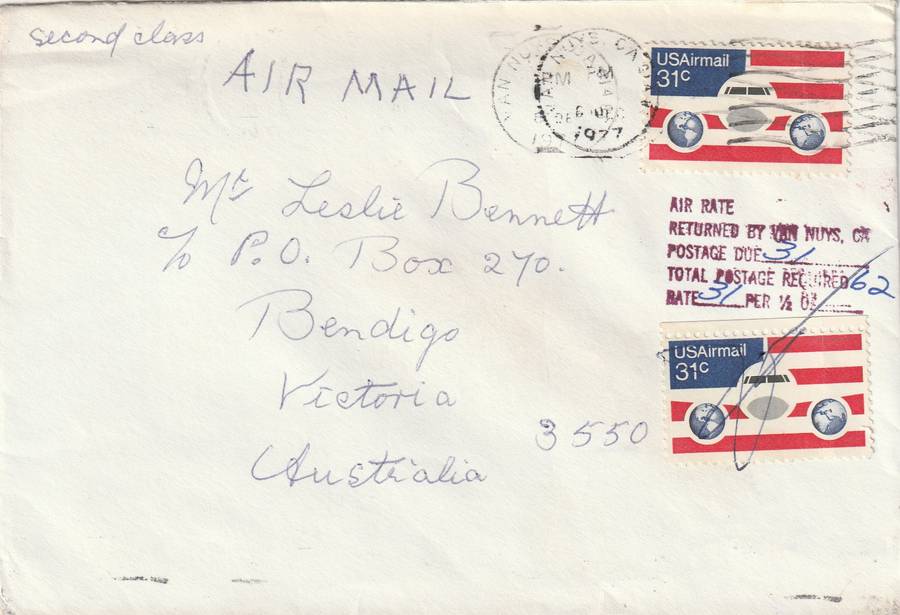 second class
AIR MAIL
VAN NUYS, CA
PM
6 DEC
1977
USAirmail
31c
Mr Leslie Bennett
c/o P.O. Box 270.
Bendigo
Victoria
3550
Australia
AIR RATE
RETURNED BY VAN NUYS, CA
POSTAGE DUE 31
TOTAL POSTAGE REQUIRED 62
RATE 31 PER ½ OZ
USAirmail
31c